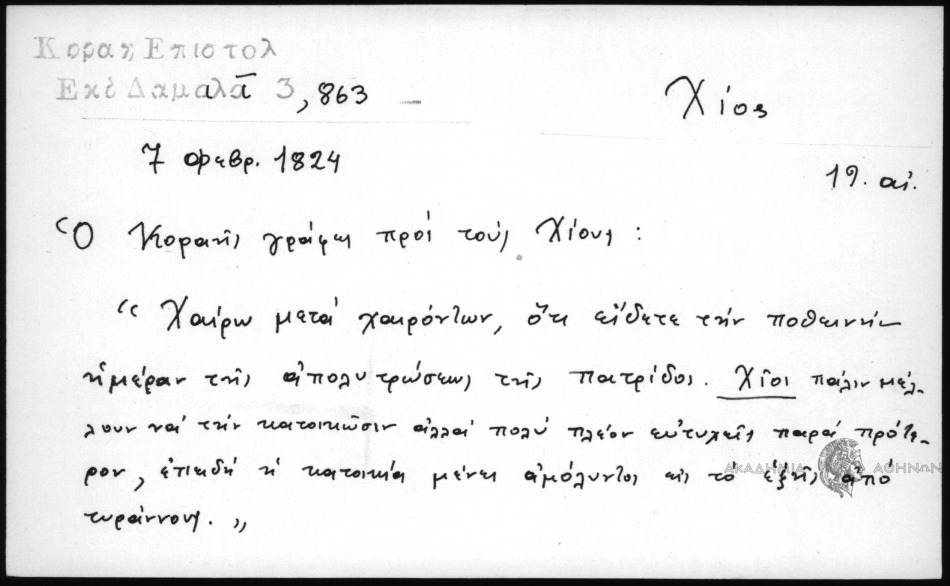 Κοραη Επιστολ
Εκδ Δαμαλᾶ 3, 863
Χίος
7 Φεβρ. 1824
19. αἰ.
Ὁ Κοραῆς γράφει πρὸς τοὺς Χίους :
“ Χαίρω μετὰ χαιρόντων, ὅτι εἴδετε τὴν ποθεινὴν
ἡμέραν τῆς ἀπολυτρώσεως τῆς πατρίδος. Χῖοι πάλιν μέλ-
λουν νὰ τὴν κατοικῶσιν ἀλλὰ πολὺ πλέον εὐτυχεῖς παρὰ πρότε-
ρον, ἐπειδὴ ἡ κατοικία μένει ἀμόλυντος εἰς τὸ ἑξῆς ἀπὸ
τυράννους. „
ΑΚΑΔΗΜΙΑ ΑΘΗΝΩΝ